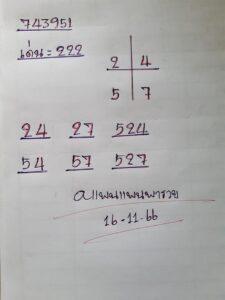 743951
เด่น = 222
2 4
5 7
24 27 524
54 57 527
แพนแพนพารวย
16-11-66